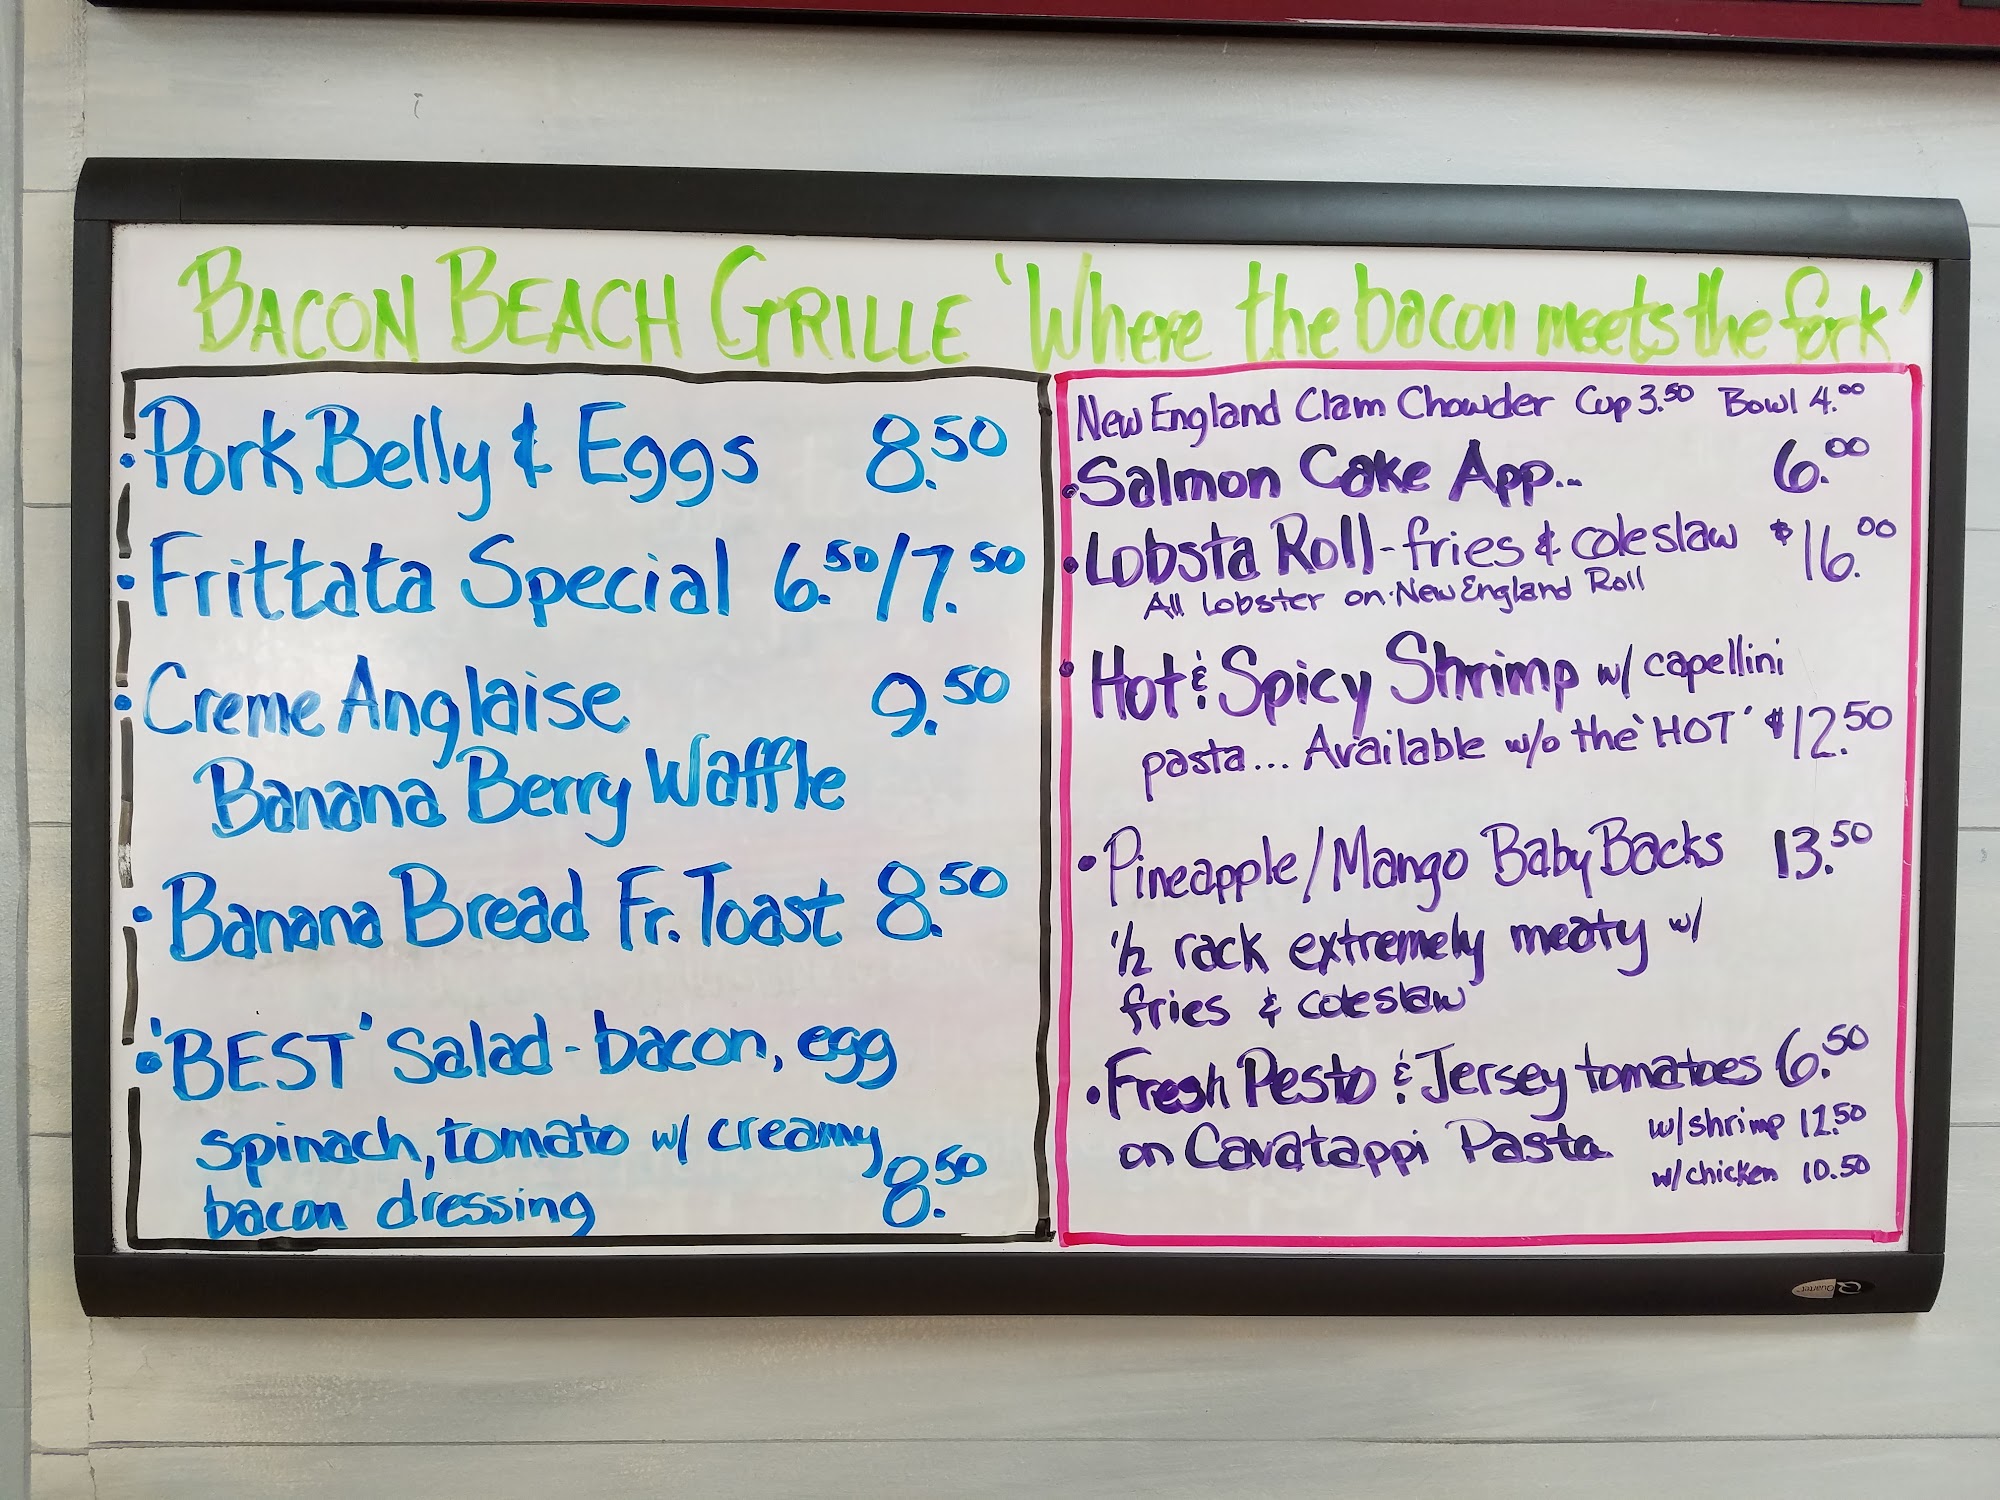 BACON BEACH GRILLE 'Where the bacon meets the fork'
• Pork Belly & Eggs 8.50
• Frittata Special 6.50/7.50
• Creme Anglaise 9.50
Banana Berry Waffle
• Banana Bread Fr. Toast 8.50
• 'BEST' Salad - bacon, egg
spinach, tomato w/ creamy
bacon dressing 8.50
New England Clam Chowder Cup 3.50 Bowl 4.00
• Salmon Cake App... 6.00
• Lobsta Roll - fries & coleslaw $16.00
All Lobster on New England Roll
• Hot & Spicy Shrimp w/ capellini
pasta... Available w/o the 'HOT' $12.50
• Pineapple/Mango Baby Backs 13.50
1/2 rack extremely meaty w/
fries & coleslaw
• Fresh Pesto & Jersey tomatoes 6.50
on Cavatappi Pasta w/shrimp 12.50
w/chicken 10.50
Quartet